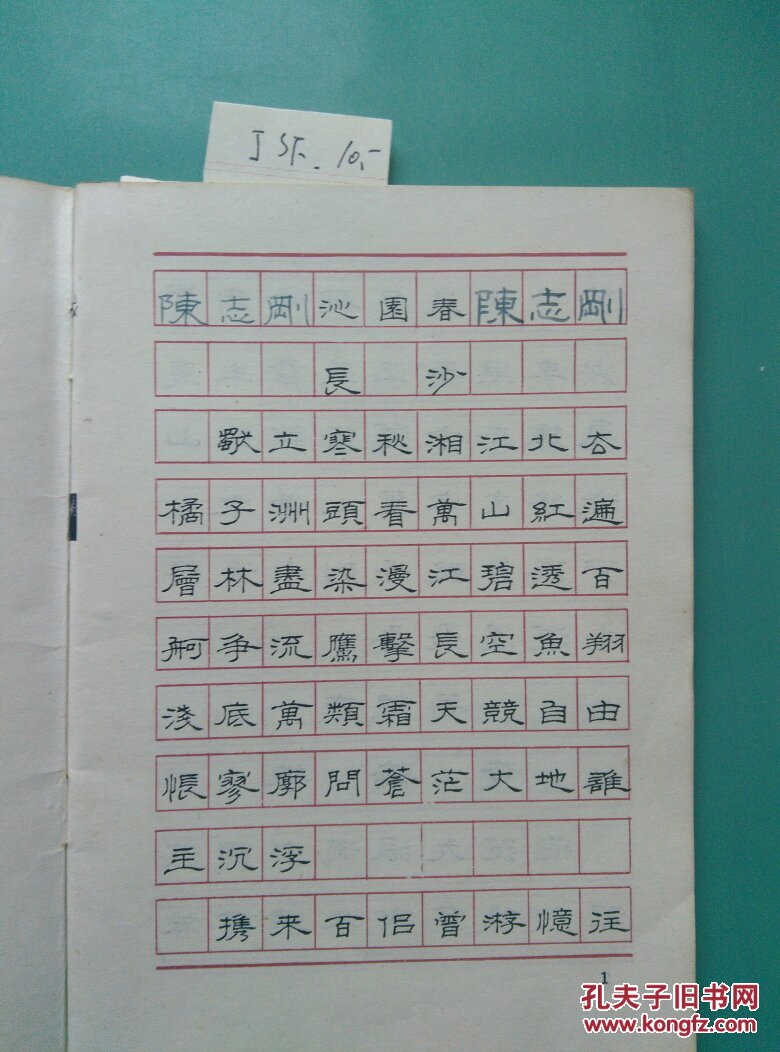 JSK. 10.-
陳志剛沁園春陳志剛
長沙
獨立寒秋湘江北去
橘子洲頭看萬山紅遍
層林盡染漫江碧透百
舸争流鷹擊長空魚翔
淺底萬類霜天競自由
悵寥廓問蒼茫大地誰
主沉浮
攜来百侣曾游憶往
1
孔夫子旧书网
www.kongfz.com